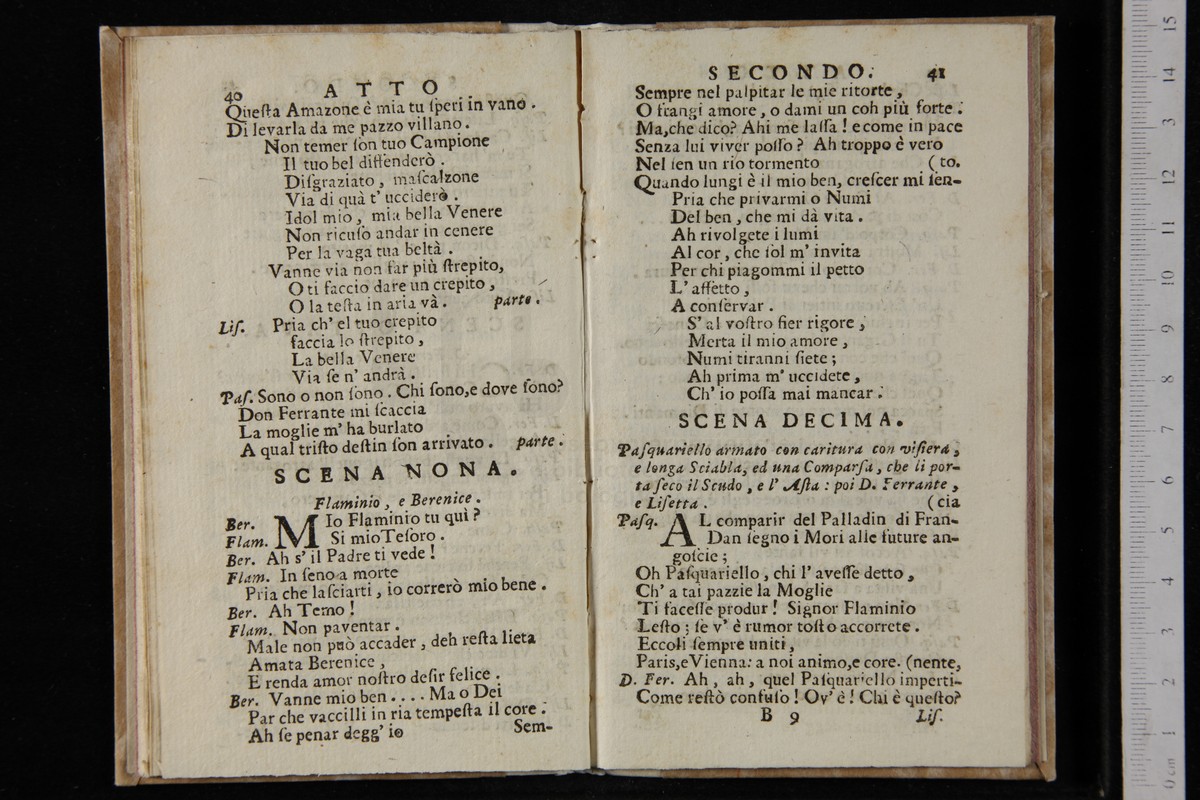 40
ATTO
Questa Amazone è mia tu speri in vano.
Di levarla da me pazzo villano.
Non temer son tuo Campione
Il tuo bel diffenderò.
Disgraziato, mascalzone
Via di quà t' ucciderò.
Idol mio, mia bella Venere
Non ricuso andar in cenere
Per la vaga tua beltà.
Vanne via non far più strepito,
O ti faccio dare un crepito,
O la testa in aria và. parte.
Lis. Pria ch' el tuo crepito
faccia lo strepito,
La bella Venere
Via se n' andrà.
Pas. Sono o non sono. Chi sono,e dove sono?
Don Ferrante mi scaccia
La moglie m' ha burlato
A qual tristo destin son arrivato. parte.
SCENA NONA.
Flaminio, e Berenice.
Ber. MIo Flaminio tu quì?
Flam. Si mioTesoro.
Ber. Ah s' il Padre ti vede!
Flam. In seno a morte
Pria che lasciarti, io correrò mio bene.
Ber. Ah Temo!
Flam. Non paventar.
Male non può accader, deh resta lieta
Amata Berenice,
E renda amor nostro desir felice.
Ber. Vanne mio ben.... Ma o Dei
Par che vaccilli in ria tempesta il core.
Ah se penar degg' io
Sem-
SECONDO.
41
Sempre nel palpitar le mie ritorte,
O frangi amore, o dami un coh più forte.
Ma,che dico? Ahi me lassa! e come in pace
Senza lui viver posso? Ah troppo è vero
Nel sen un rio tormento (to.
Quando lungi è il mio ben, crescer mi sen-
Pria che privarmi o Numi
Del ben, che mi dà vita.
Ah rivolgete i lumi
Al cor, che sol m' invita
Per chi piagommi il petto
L' affetto,
A conservar.
S' al vostro fier rigore,
Merta il mio amore,
Numi tiranni siete;
Ah prima m' uccidete,
Ch' io possa mai mancar.
SCENA DECIMA.
Pasquariello armato con caritura con visiera,
e longa Sciabla, ed una Comparsa, che li por-
ta seco il Scudo, e l' Asta: poi D. Ferrante,
e Lisetta. (cia
Pasq. AL comparir del Palladin di Fran-
Dan segno i Mori alle future an-
goscie;
Oh Pasquariello, chi l' avesse detto,
Ch' a tai pazzie la Moglie
Ti facesse produr! Signor Flaminio
Lesto; se v' è rumor tosto accorrete.
Eccoli sempre uniti,
Paris,eVienna: a noi animo,e core. (nente,
D. Fer. Ah, ah, quel Pasquariello imperti-
Come restò confuso! Ov' è! Chi è questo?
B 9
Lis.